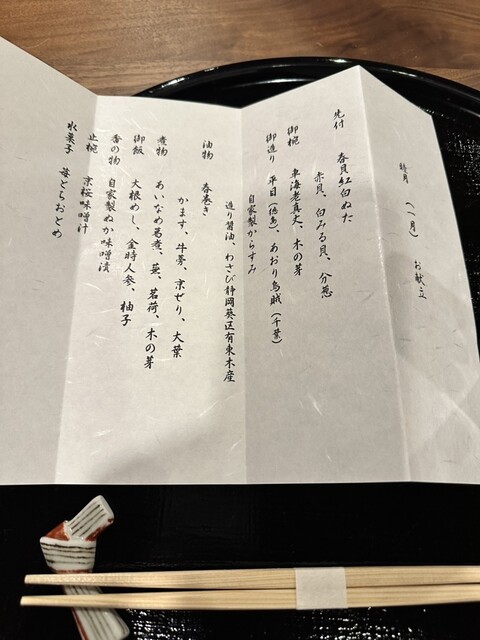 睦月 (一月) お献立
先付 春貝紅白ぬた
赤貝、白みる貝、分葱
御椀 車海老真丈、木の芽
御造り 平目(徳島)、あおり烏賊(千葉)
自家製からすみ
造り醤油、わさび静岡葵区有東木産
油物 春巻き
かます、牛蒡、京ぜり、大葉
煮物 あいなめ葛煮、蕪、茗荷、木の芽
御飯 大根めし、金時人参、柚子
香の物 自家製ぬか味噌漬
止椀 京桜味噌汁
水菓子 苺とちおとめ